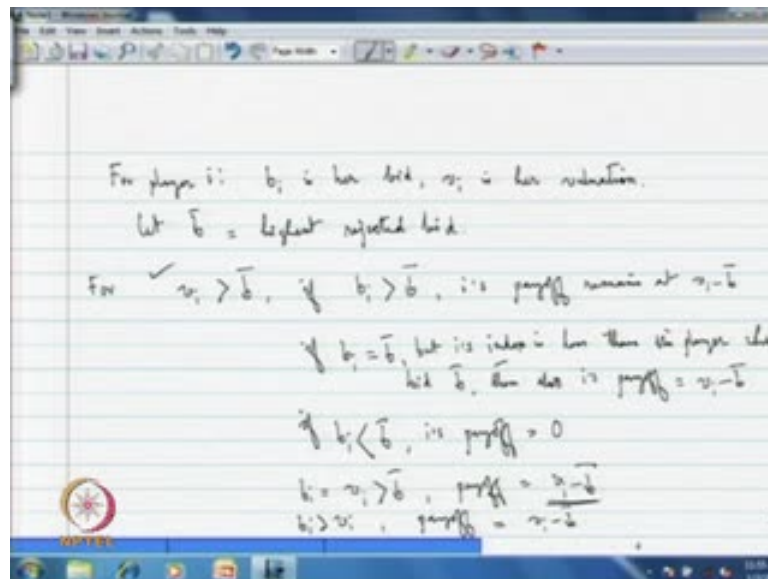 Note1 - Windows Journal
File Edit View Insert Actions Tools Help
Page Width
For player i: b_i is her bid, v_i is her valuation.
Let b̄ = highest rejected bid.
For ✓ v_i > b̄, if b_i > b̄, i's payoff remains at v_i - b̄
if b_i = b̄, but i's index is less than the player who
bid b̄, then also i's payoff = v_i - b̄
if b_i < b̄, i's payoff = 0
b_i = v_i > b̄, payoff = v_i - b̄
b_i > v_i, payoff = v_i - b̄
NPTEL